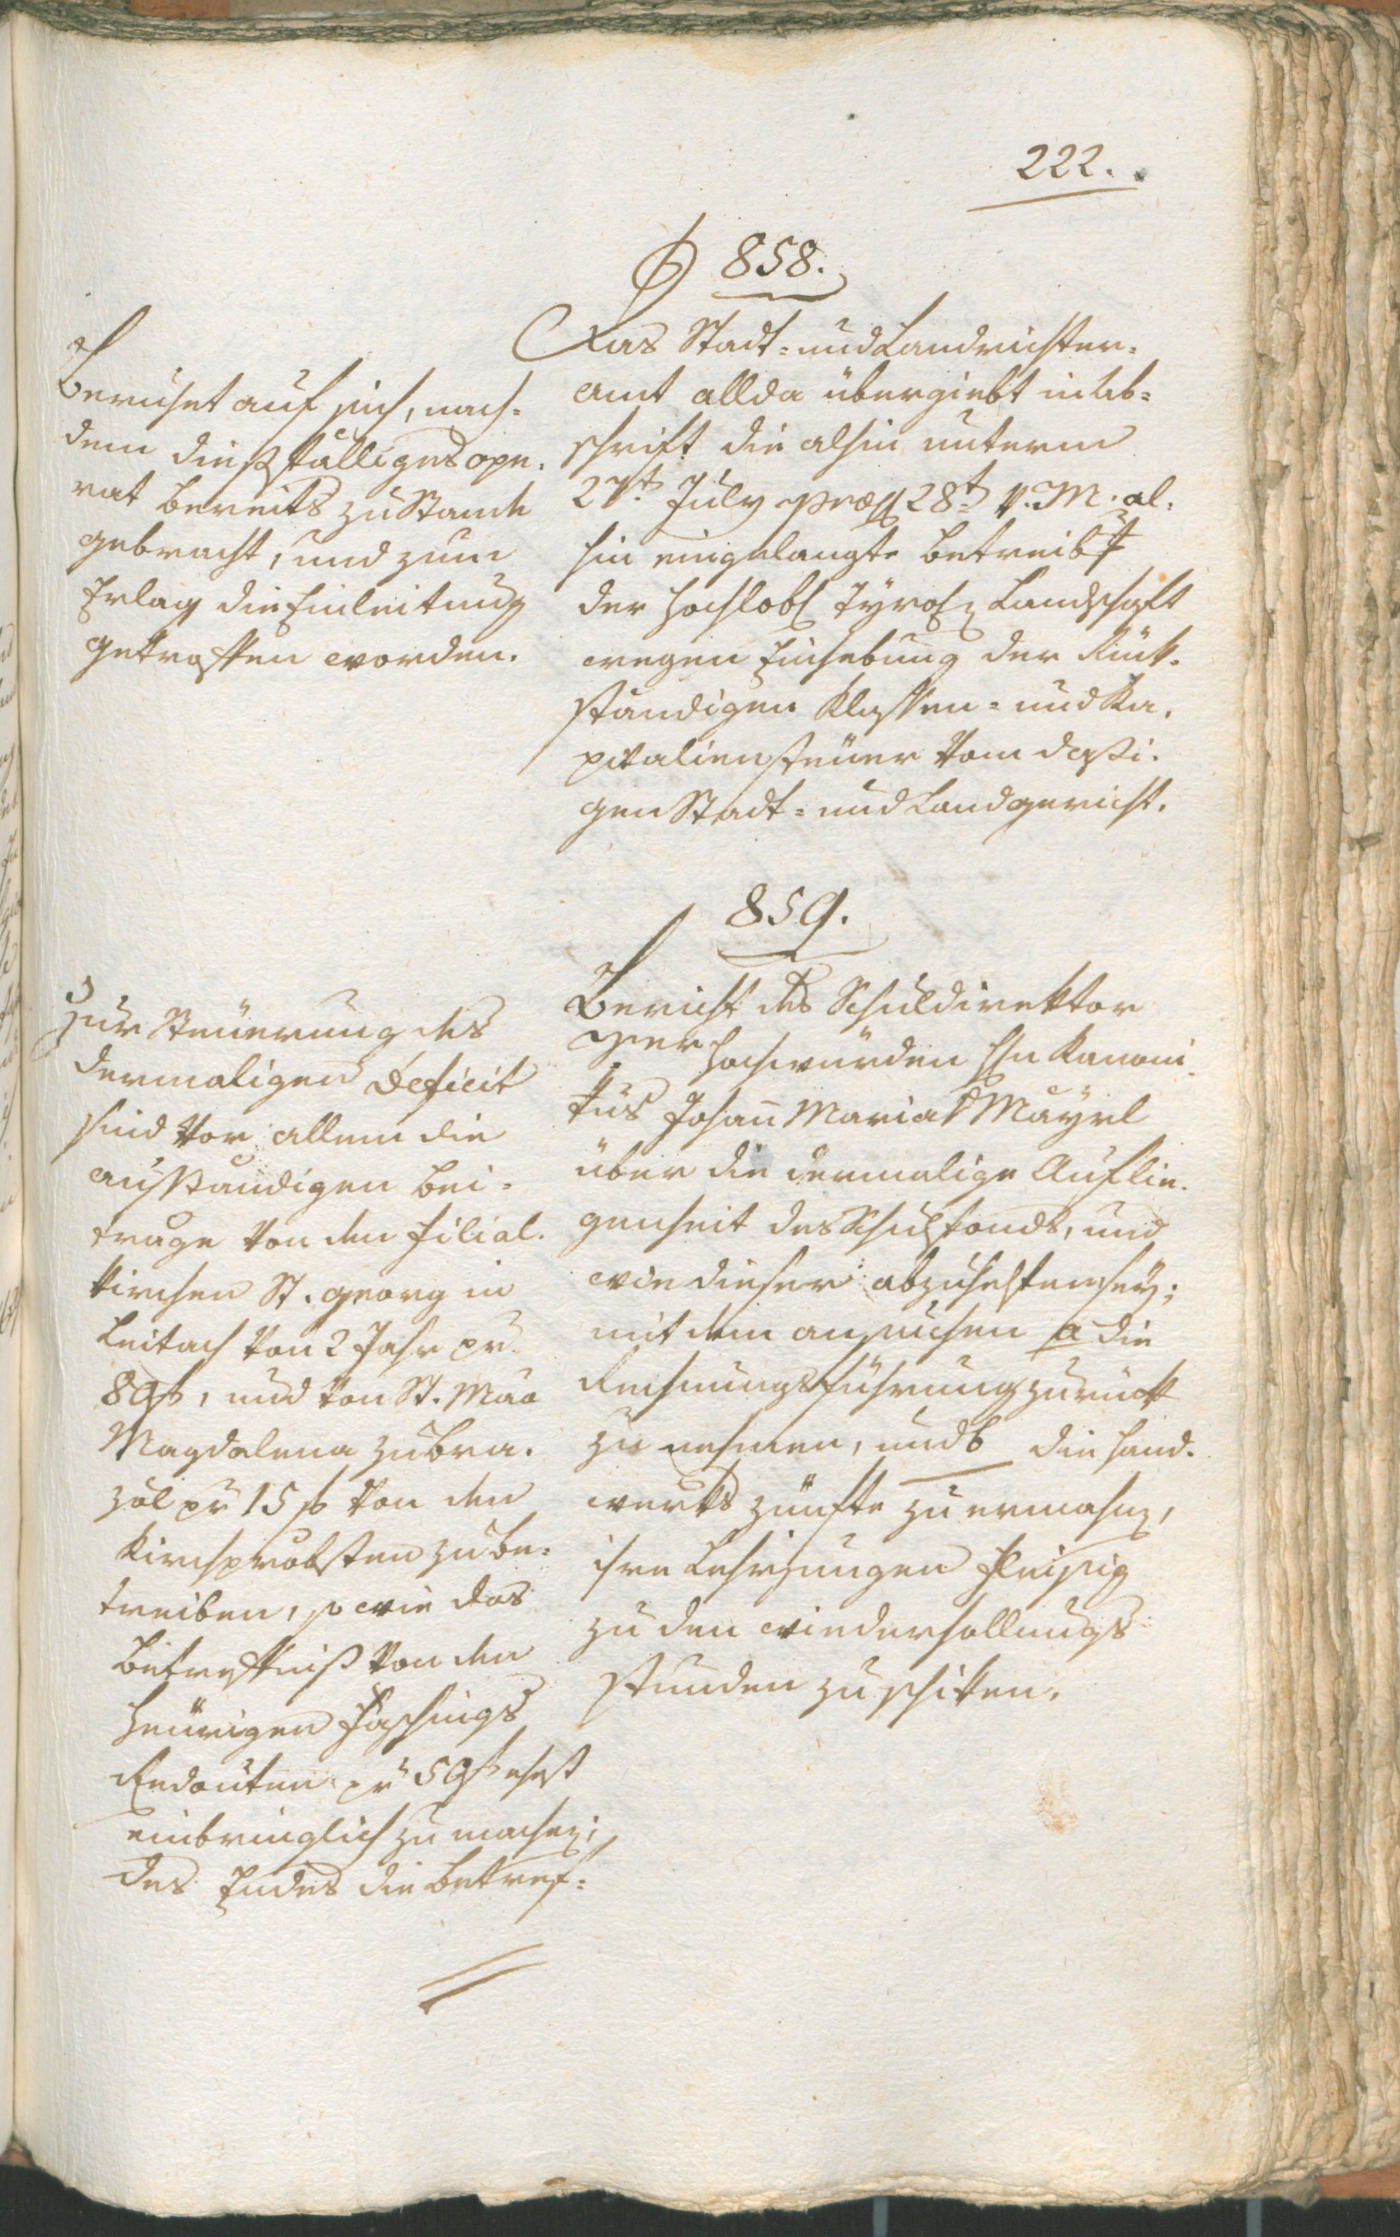 222.
§ 858.
Das Stadt= und Landrichter=
amt allda übergiebt in Ab=
schrift die alhin unterm
27t. July præs 28t v. M. al=
hin eingelangte Betreib
der hochlobl Tyrol Landschaft
wegen Einhebung der Rück=
ständigen Klassen= und Ka=
pitaliensteuer vom dasi=
gen Stadt= und Landgericht.
Beruhet auf sich, nach=
dem dießfälliges ope=
rat bereits zu Stande
gebracht, und zum
Erlag die Einleitung
getroffen worden.
859.
Bericht des Schuldirektor
Hochwürden Hn Kanoni=
kus Johann Maria Mayrl
über die dermalige Auflie=
genheit des Schulfonds, und
wie dieser abzuhelfen sey;
mit dem ansuchen a die
Rechnungsführung zurück
zu nehmen, und b die Hand=
werks zünfte zu ermahnen,
ihre Lehrjungen fleißig
zu den wiederhollungs
stunden zu schiken.
Zur Steuerung des
dermaligen Deficit
sind vor allem die
ausständigen Bei=
träge von den Filial=
kirchen St. Georg in
Leitach von 2 Jahr pr
89 f, und von St. Maa
Magdalena zu Bra=
zöl pr 15 f von den
Kirchpröbsten zu be=
treiben, so wie das
Betreffniß von den
heurigen Faschings
Redouten pr 59 f ehest
einbringlich zu machen;
des Endes die Betref=